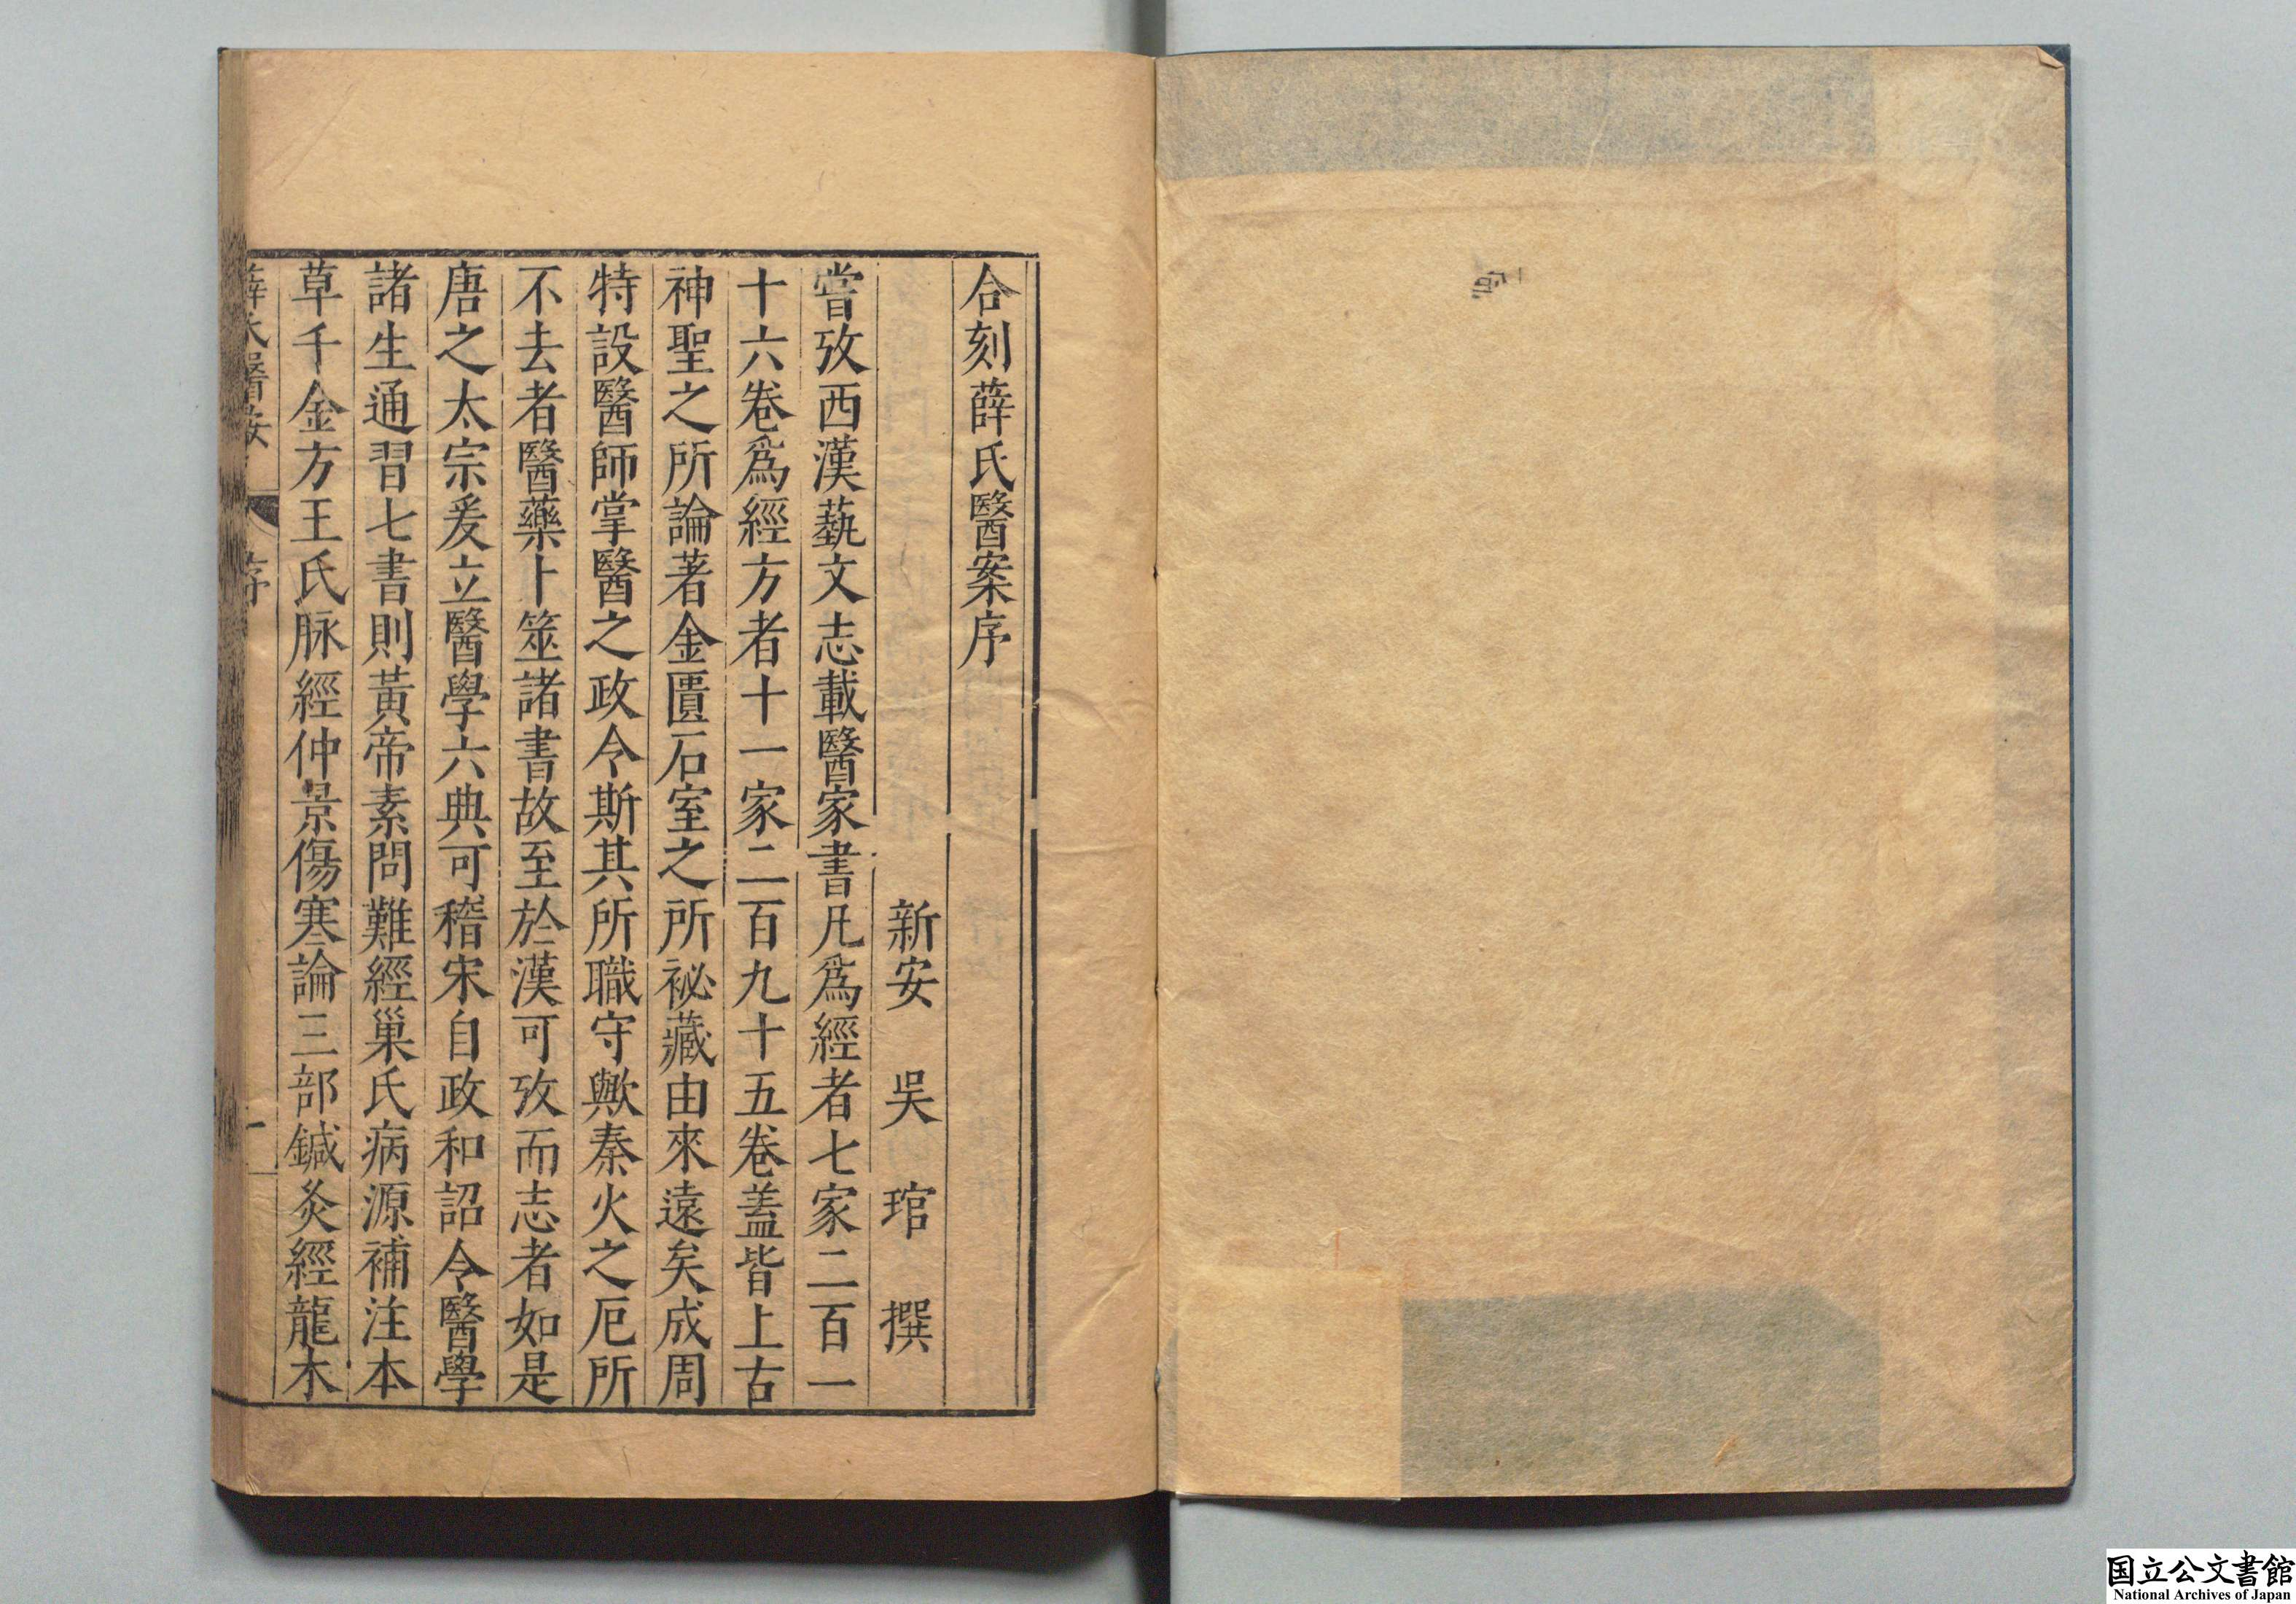 合刻薛氏醫案序
新安 吳 琯 撰
嘗攷西漢藝文志載醫家書凡爲經者七家二百一
十六卷爲經方者十一家二百九十五卷盖皆上古
神聖之所論著金匱石室之所祕藏由來遠矣成周
特設醫師掌醫之政令斯其所職守歟秦火之厄所
不去者醫藥卜筮諸書故至於漢可攷而志者如是
唐之太宗爰立醫學六典可稽宋自政和詔令醫學
諸生通習七書則黃帝素問難經巢氏病源補注本
草千金方王氏脉經仲景傷寒論三部鍼灸經龍木
薛氏醫案 序 一
国立公文書館
National Archives of Japan